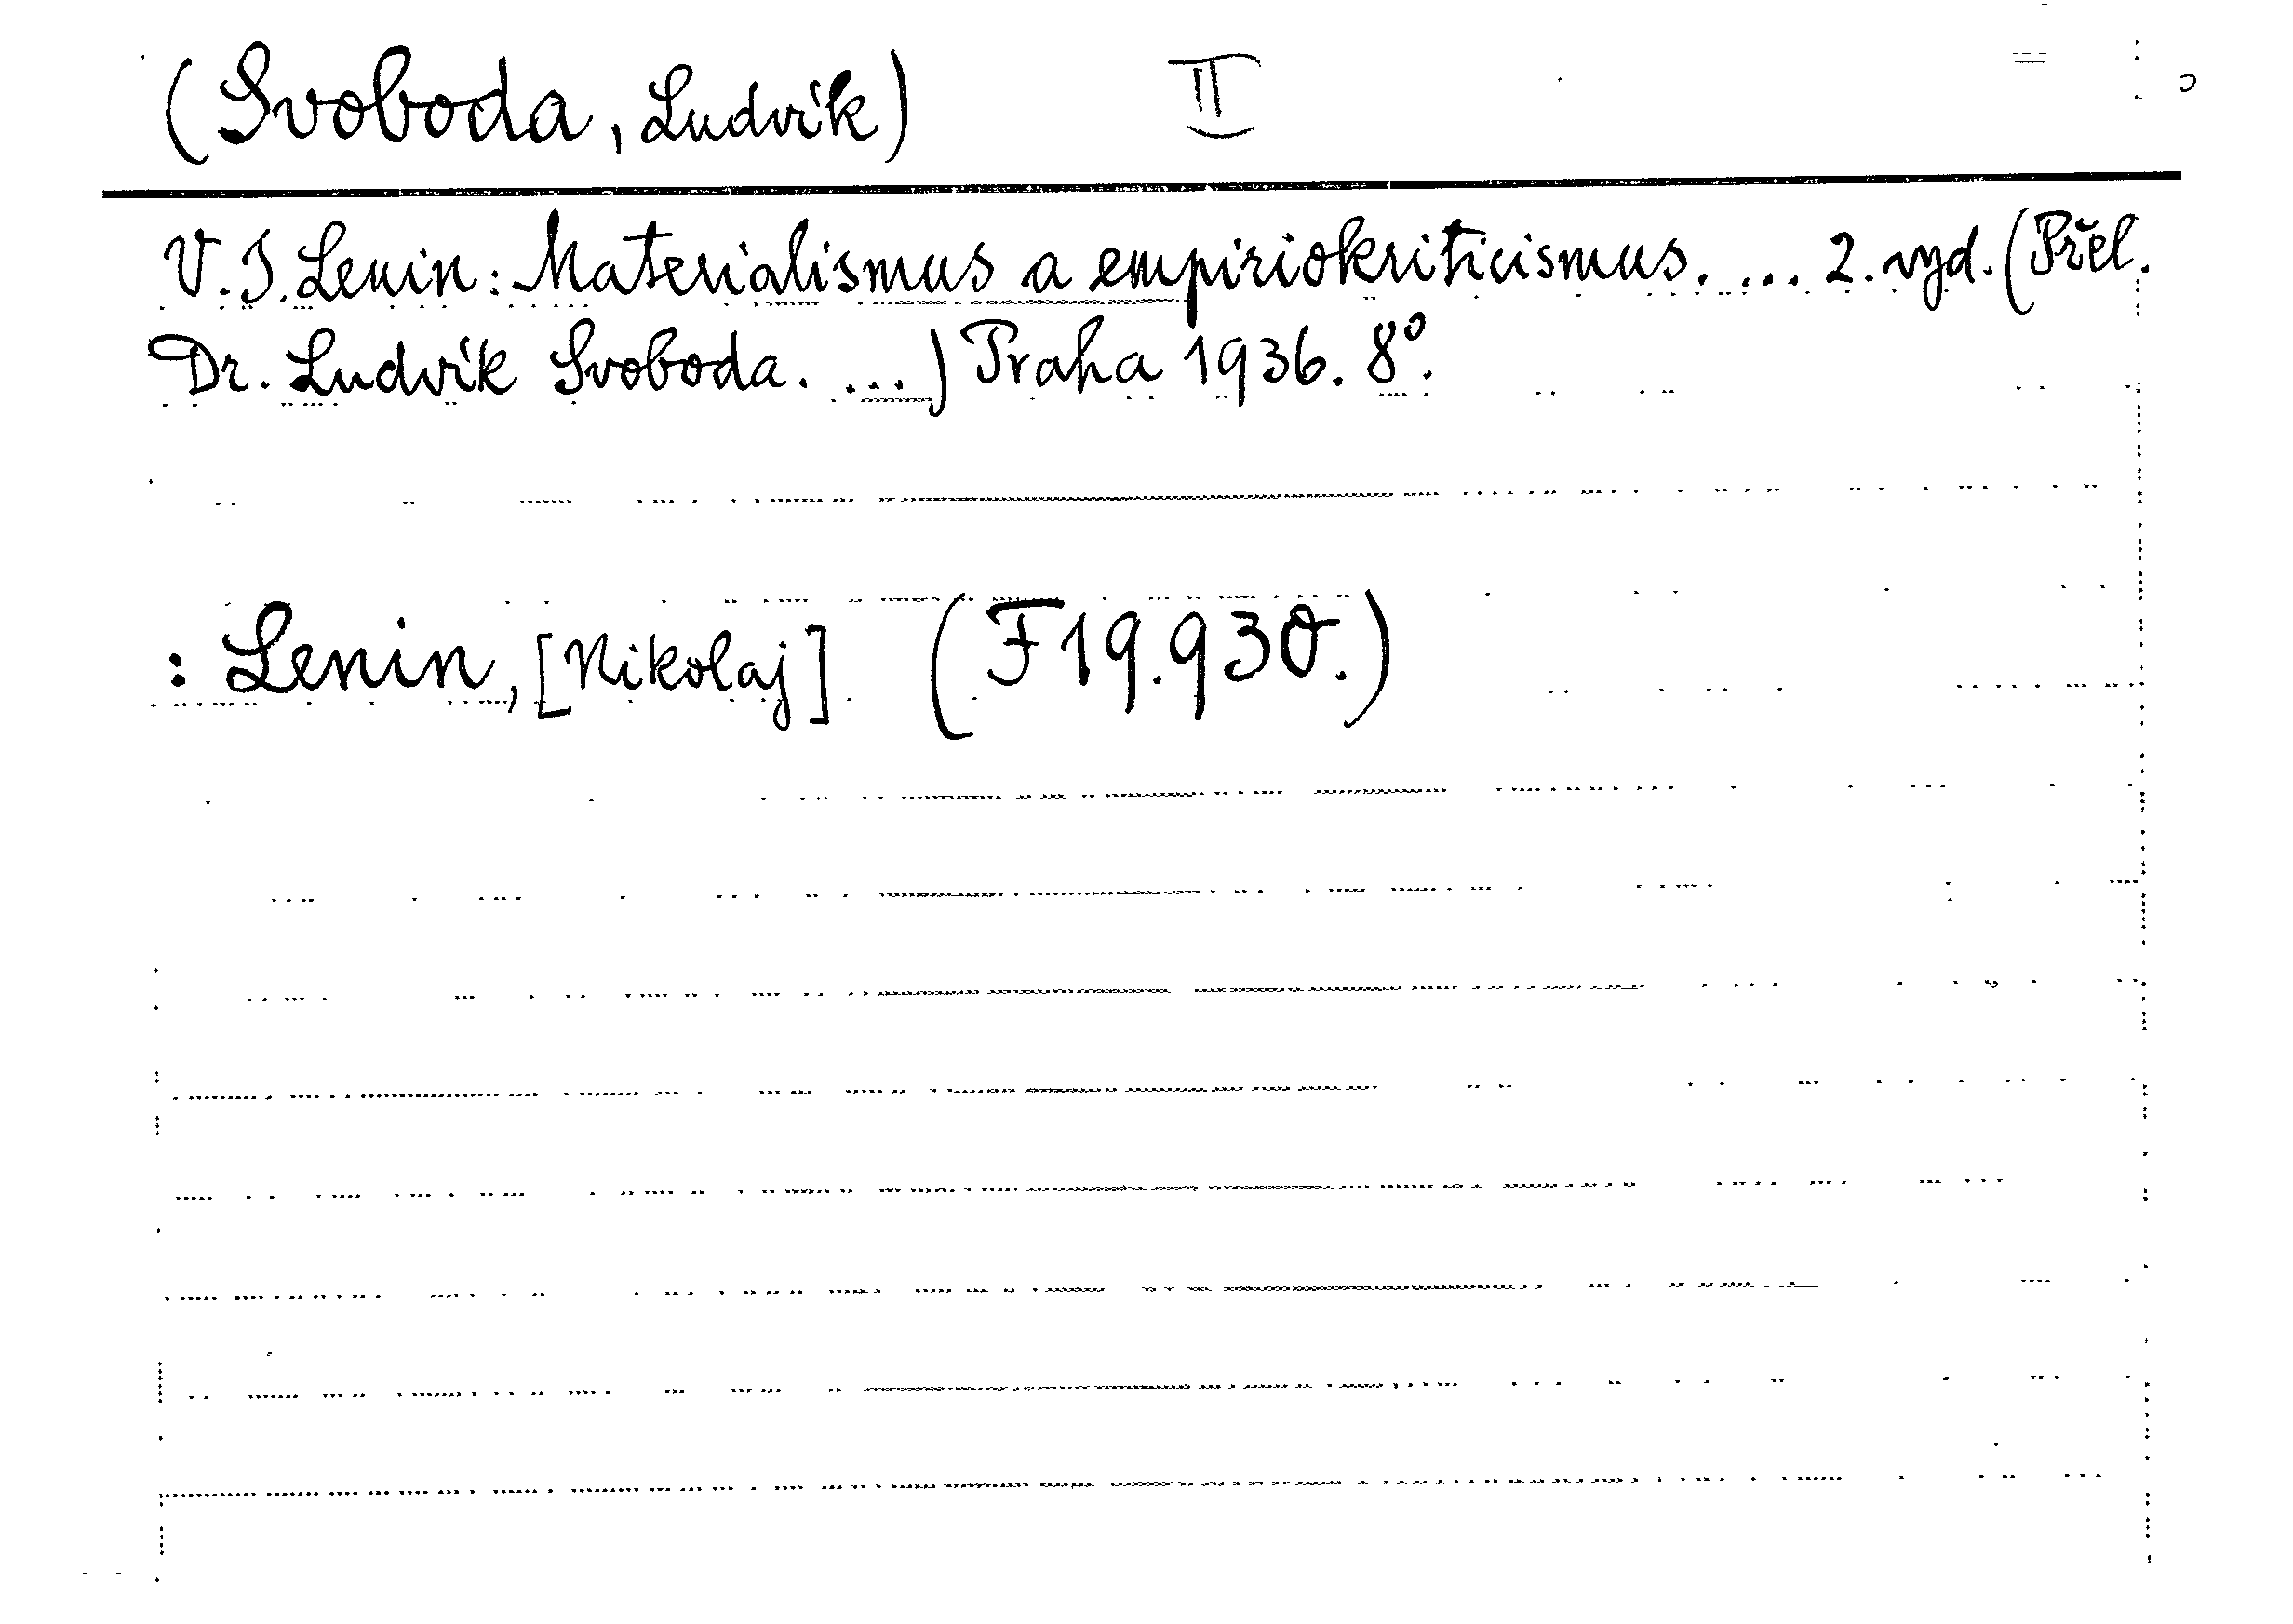 (Svoboda, Ludvík) II
V. I. Lenin: Materialismus a empiriokriticismus. ... 2. vyd. (Přel.
Dr. Ludvík Svoboda. ...) Praha 1936. 8°.
: Lenin, [Nikolaj] (F 19.930.)